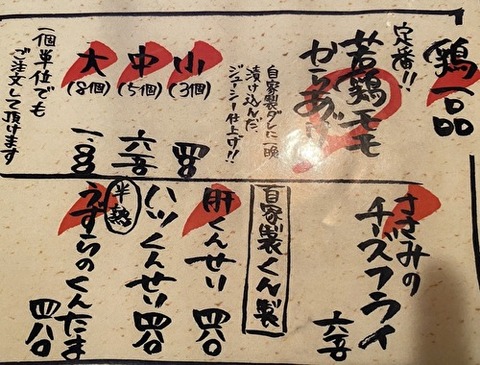 鶏一品
定番!!
若鶏モモ
からあげ
自家製ダレに一晩
漬け込んだ
ジューシー仕上げ!!
小
(3個)
中
(5個)
大
(8個)
一個単位でも
ご注文して頂けます
ささみの
チーズフライ
自家製くん製
肝くんせい 四八〇
ハツくんせい 四八〇
半熟
うずらのくんたま 四八〇